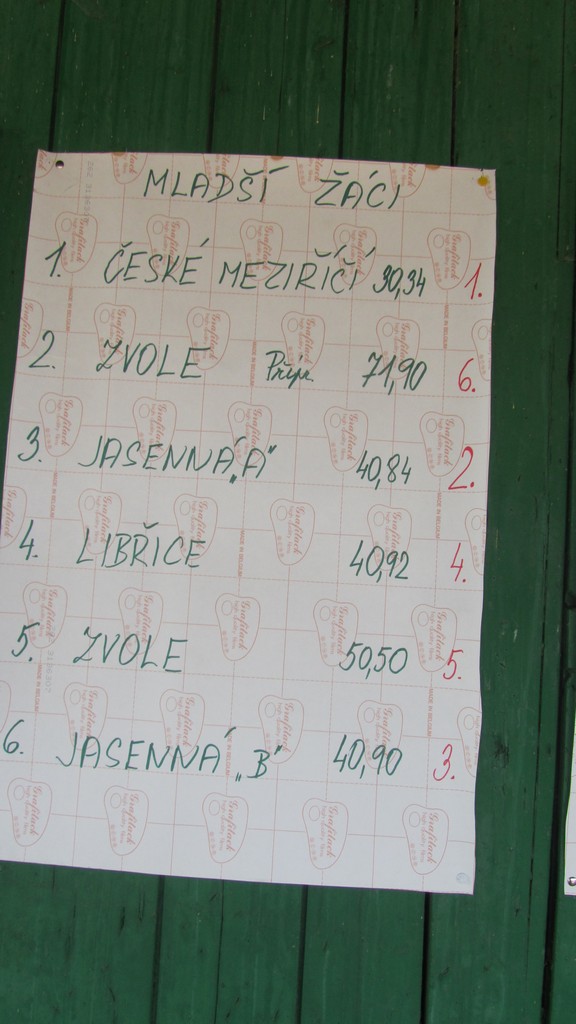 MLADŠÍ ŽÁCI
1. ČESKÉ MEZIŘÍČÍ 30,34 1.
2. ZVOLE Příp. 71,90 6.
3. JASENNÁ „A" 40,84 2.
4. LIBŘICE 40,92 4.
5. ZVOLE 50,50 5.
6. JASENNÁ „B" 40,90 3.
Grafitack
MADE IN BELGIUM